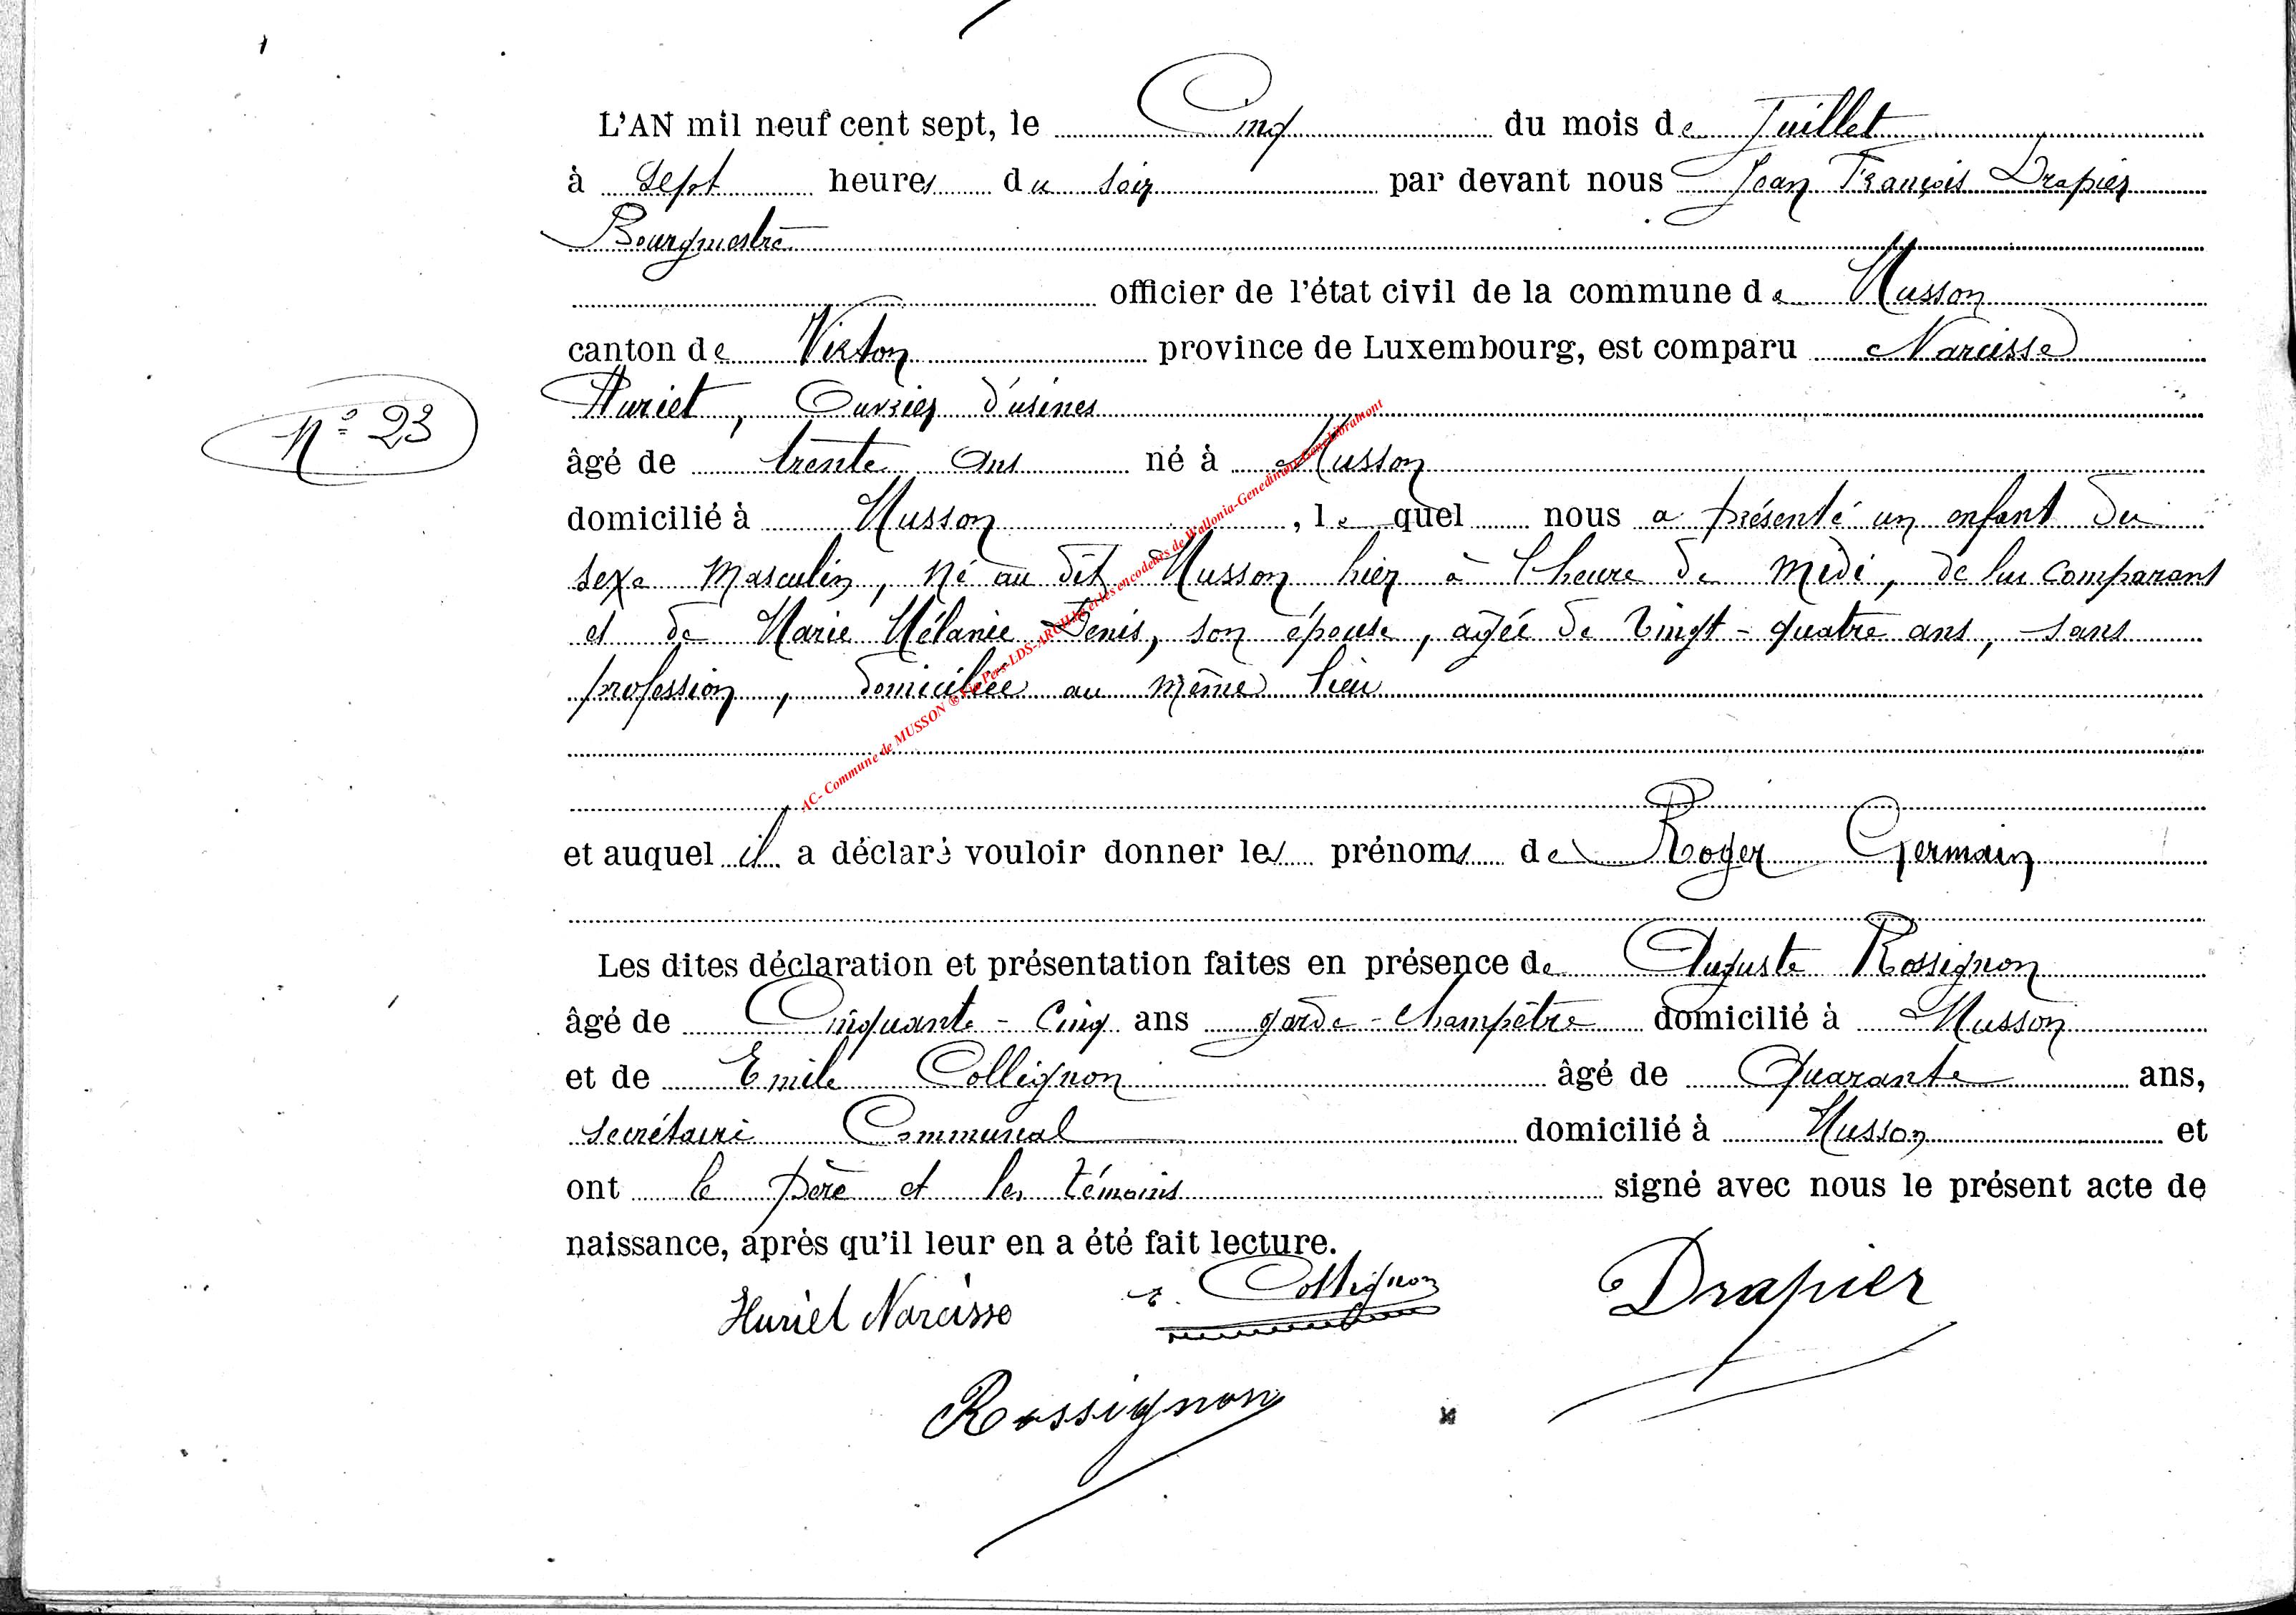 L'AN mil neuf cent sept, le Cinq du mois de Juillet
à sept heures du soir par devant nous Jean François Drapier
Bourgmestre
officier de l'état civil de la commune de Musson
canton de Virton province de Luxembourg, est comparu Narcisse
Huriet, Ouvrier d'usines
N° 23
âgé de trente ans né à Musson
domicilié à Musson, lequel nous a présenté un enfant du
sexe masculin, né au dit Musson hier à l'heure de midi, de lui comparant
et de Marie Mélanie Denis, son épouse, agée de vingt-quatre ans, sans
profession, domiciliée au même lieu
AC- Commune de MUSSON ® Via Pers-LDS-ARCH.be et les encodeurs de Wallonia-Genedinant-Gette-Libramont
et auquel il a déclaré vouloir donner les prénoms de Roger Germain
Les dites déclaration et présentation faites en présence de Auguste Rossignon
âgé de Cinquante-Cinq ans garde-champêtre domicilié à Musson
et de Emile Collignon âgé de Quarante ans,
secrétaire Communal domicilié à Musson et
ont le père et les témoins signé avec nous le présent acte de
naissance, après qu'il leur en a été fait lecture.
Huriet Narcisse E. Collignon Drapier
Rossignon